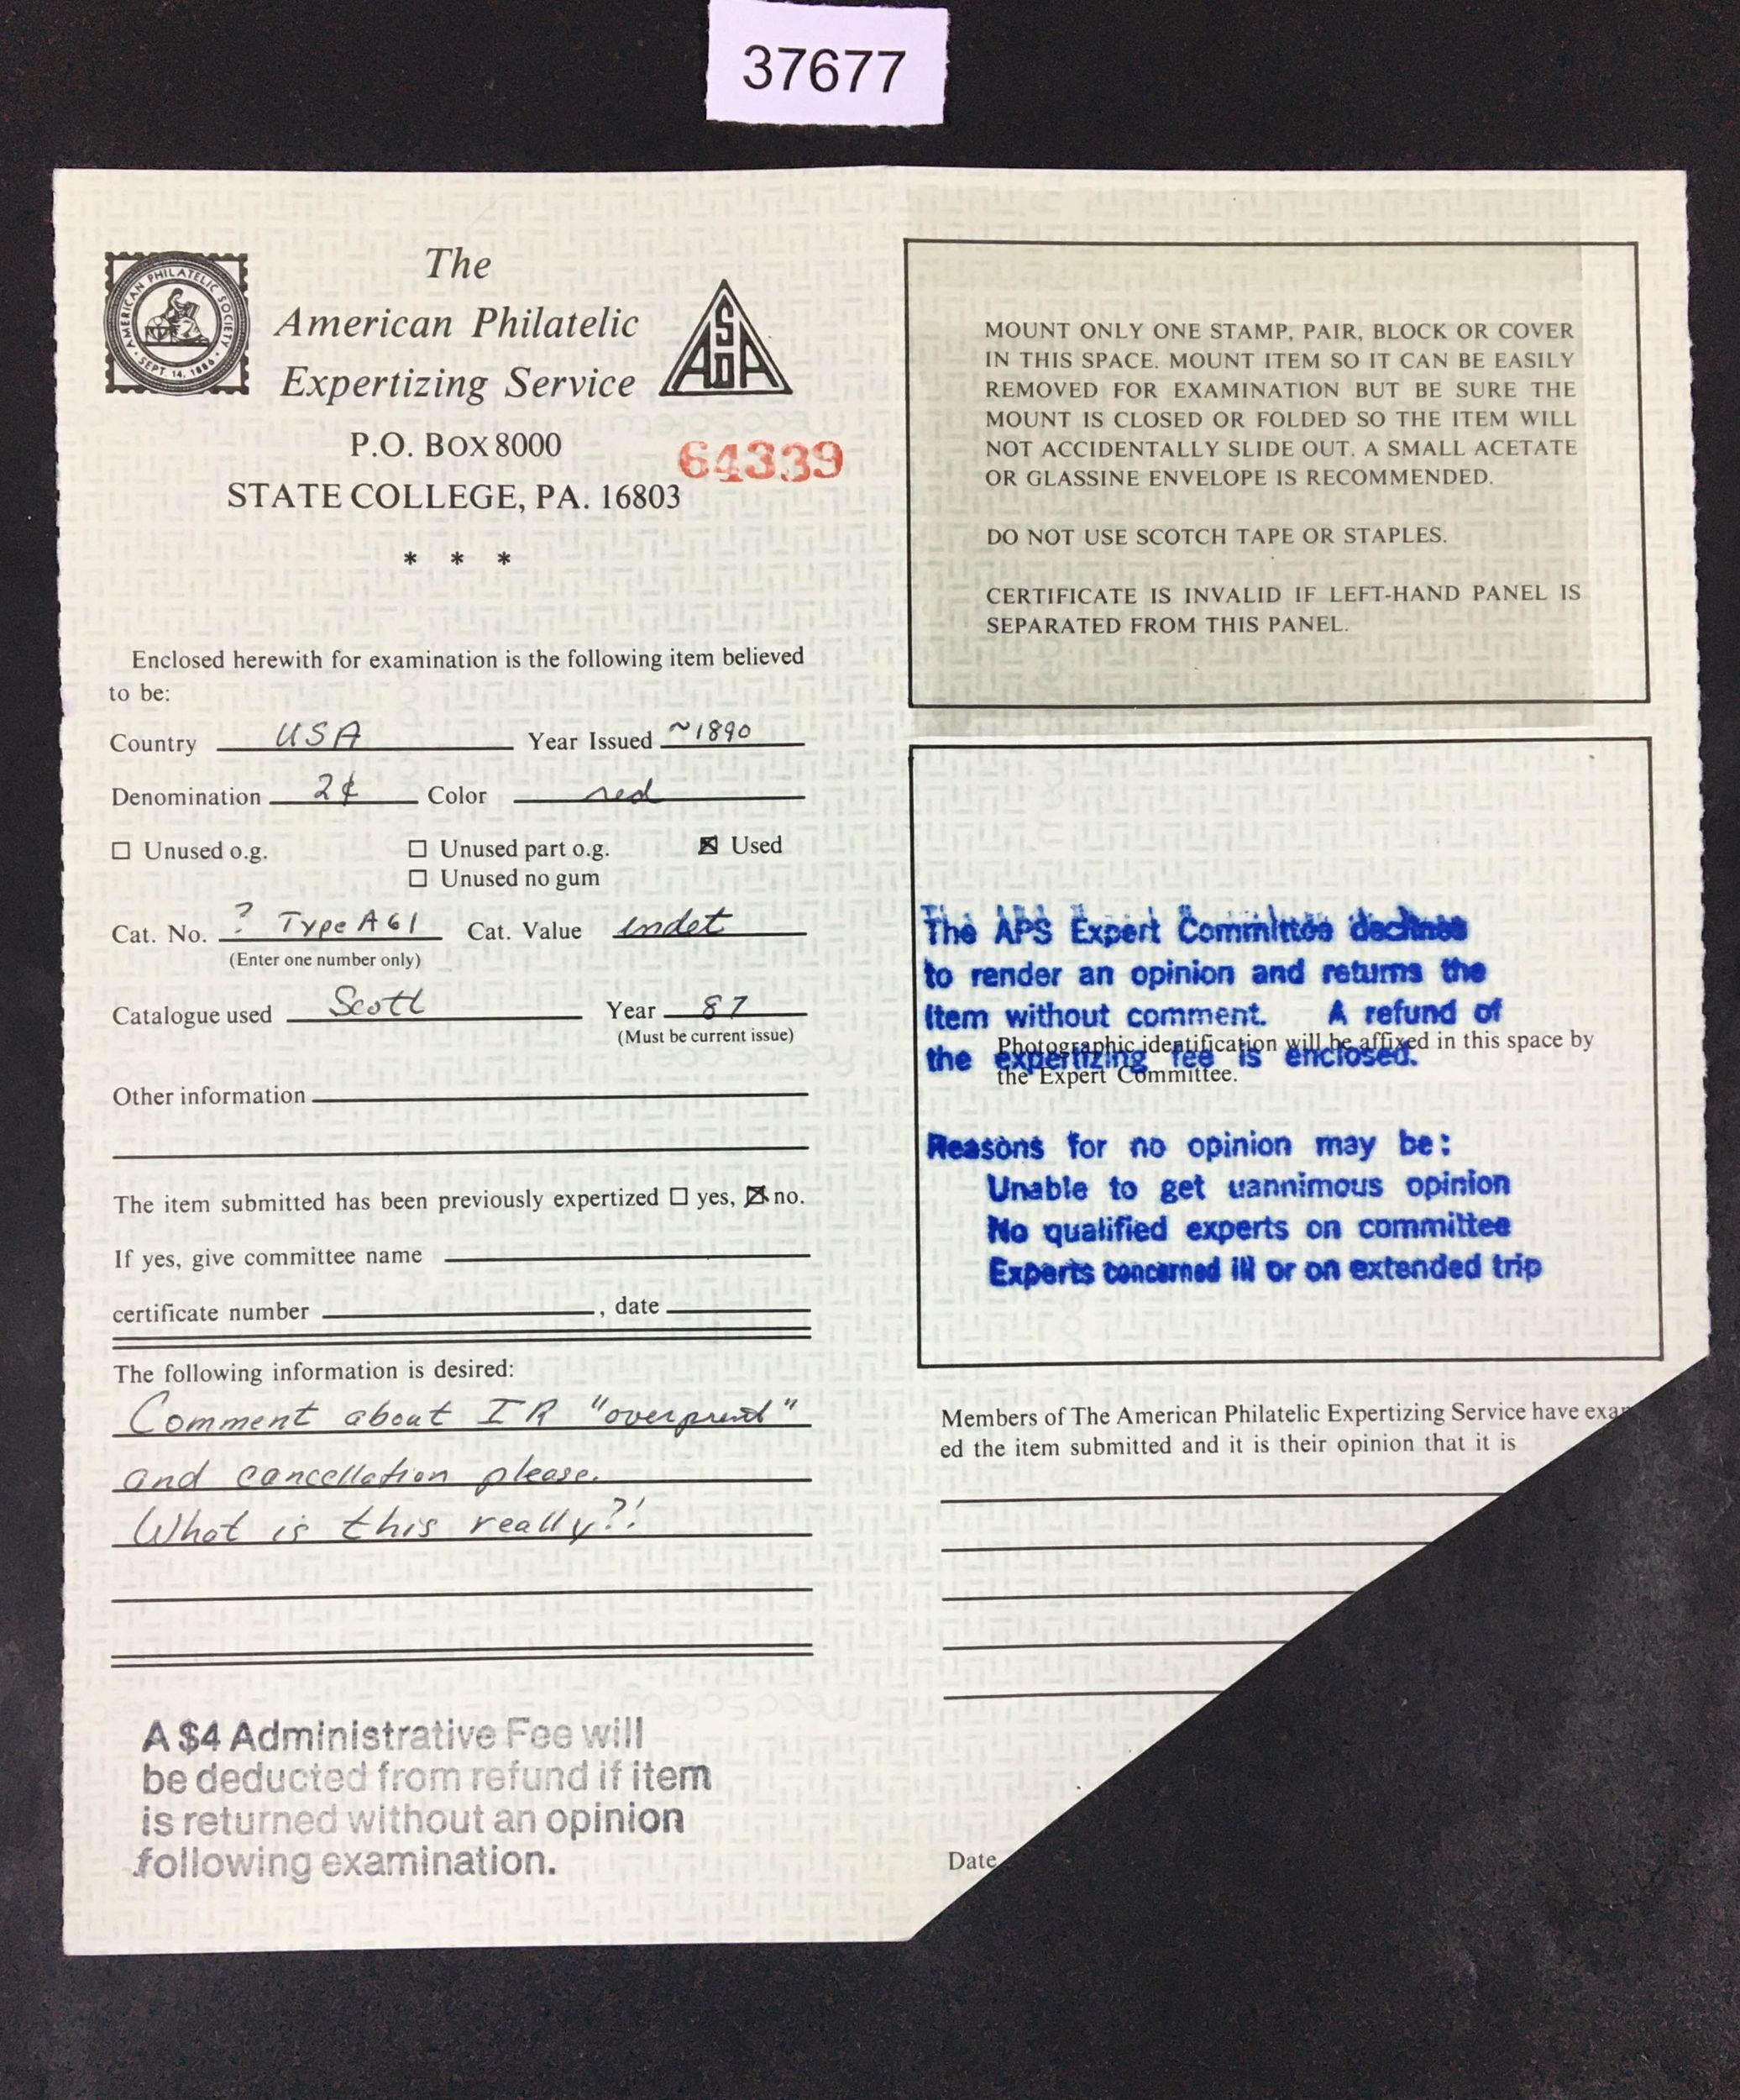 37677
AMERICAN PHILATELIC SOCIETY
SEPT. 14, 1886
The
American Philatelic
Expertizing Service
ASDA
P.O. BOX 8000
64339
STATE COLLEGE, PA. 16803
* * *
Enclosed herewith for examination is the following item believed
to be:
Country USA Year Issued ~1890
Denomination 2¢ Color red
☐ Unused o.g. ☐ Unused part o.g. ☒ Used
☐ Unused no gum
Cat. No. ? Type A61 Cat. Value indet
(Enter one number only)
Catalogue used Scott Year 87
(Must be current issue)
Other information
The item submitted has been previously expertized ☐ yes, ☒ no.
If yes, give committee name
certificate number , date
The following information is desired:
Comment about IR "overprint"
and cancellation please.
What is this really?!
A $4 Administrative Fee will
be deducted from refund if item
is returned without an opinion
following examination.
MOUNT ONLY ONE STAMP, PAIR, BLOCK OR COVER
IN THIS SPACE. MOUNT ITEM SO IT CAN BE EASILY
REMOVED FOR EXAMINATION BUT BE SURE THE
MOUNT IS CLOSED OR FOLDED SO THE ITEM WILL
NOT ACCIDENTALLY SLIDE OUT. A SMALL ACETATE
OR GLASSINE ENVELOPE IS RECOMMENDED.
DO NOT USE SCOTCH TAPE OR STAPLES.
CERTIFICATE IS INVALID IF LEFT-HAND PANEL IS
SEPARATED FROM THIS PANEL.
The APS Expert Committee declines
to render an opinion and returns the
item without comment. A refund of
the expertizing fee is enclosed.
Photographic identification will be affixed in this space by
the Expert Committee.
Reasons for no opinion may be:
Unable to get uannimous opinion
No qualified experts on committee
Experts concerned ill or on extended trip
Members of The American Philatelic Expertizing Service have exam
ed the item submitted and it is their opinion that it is
Date